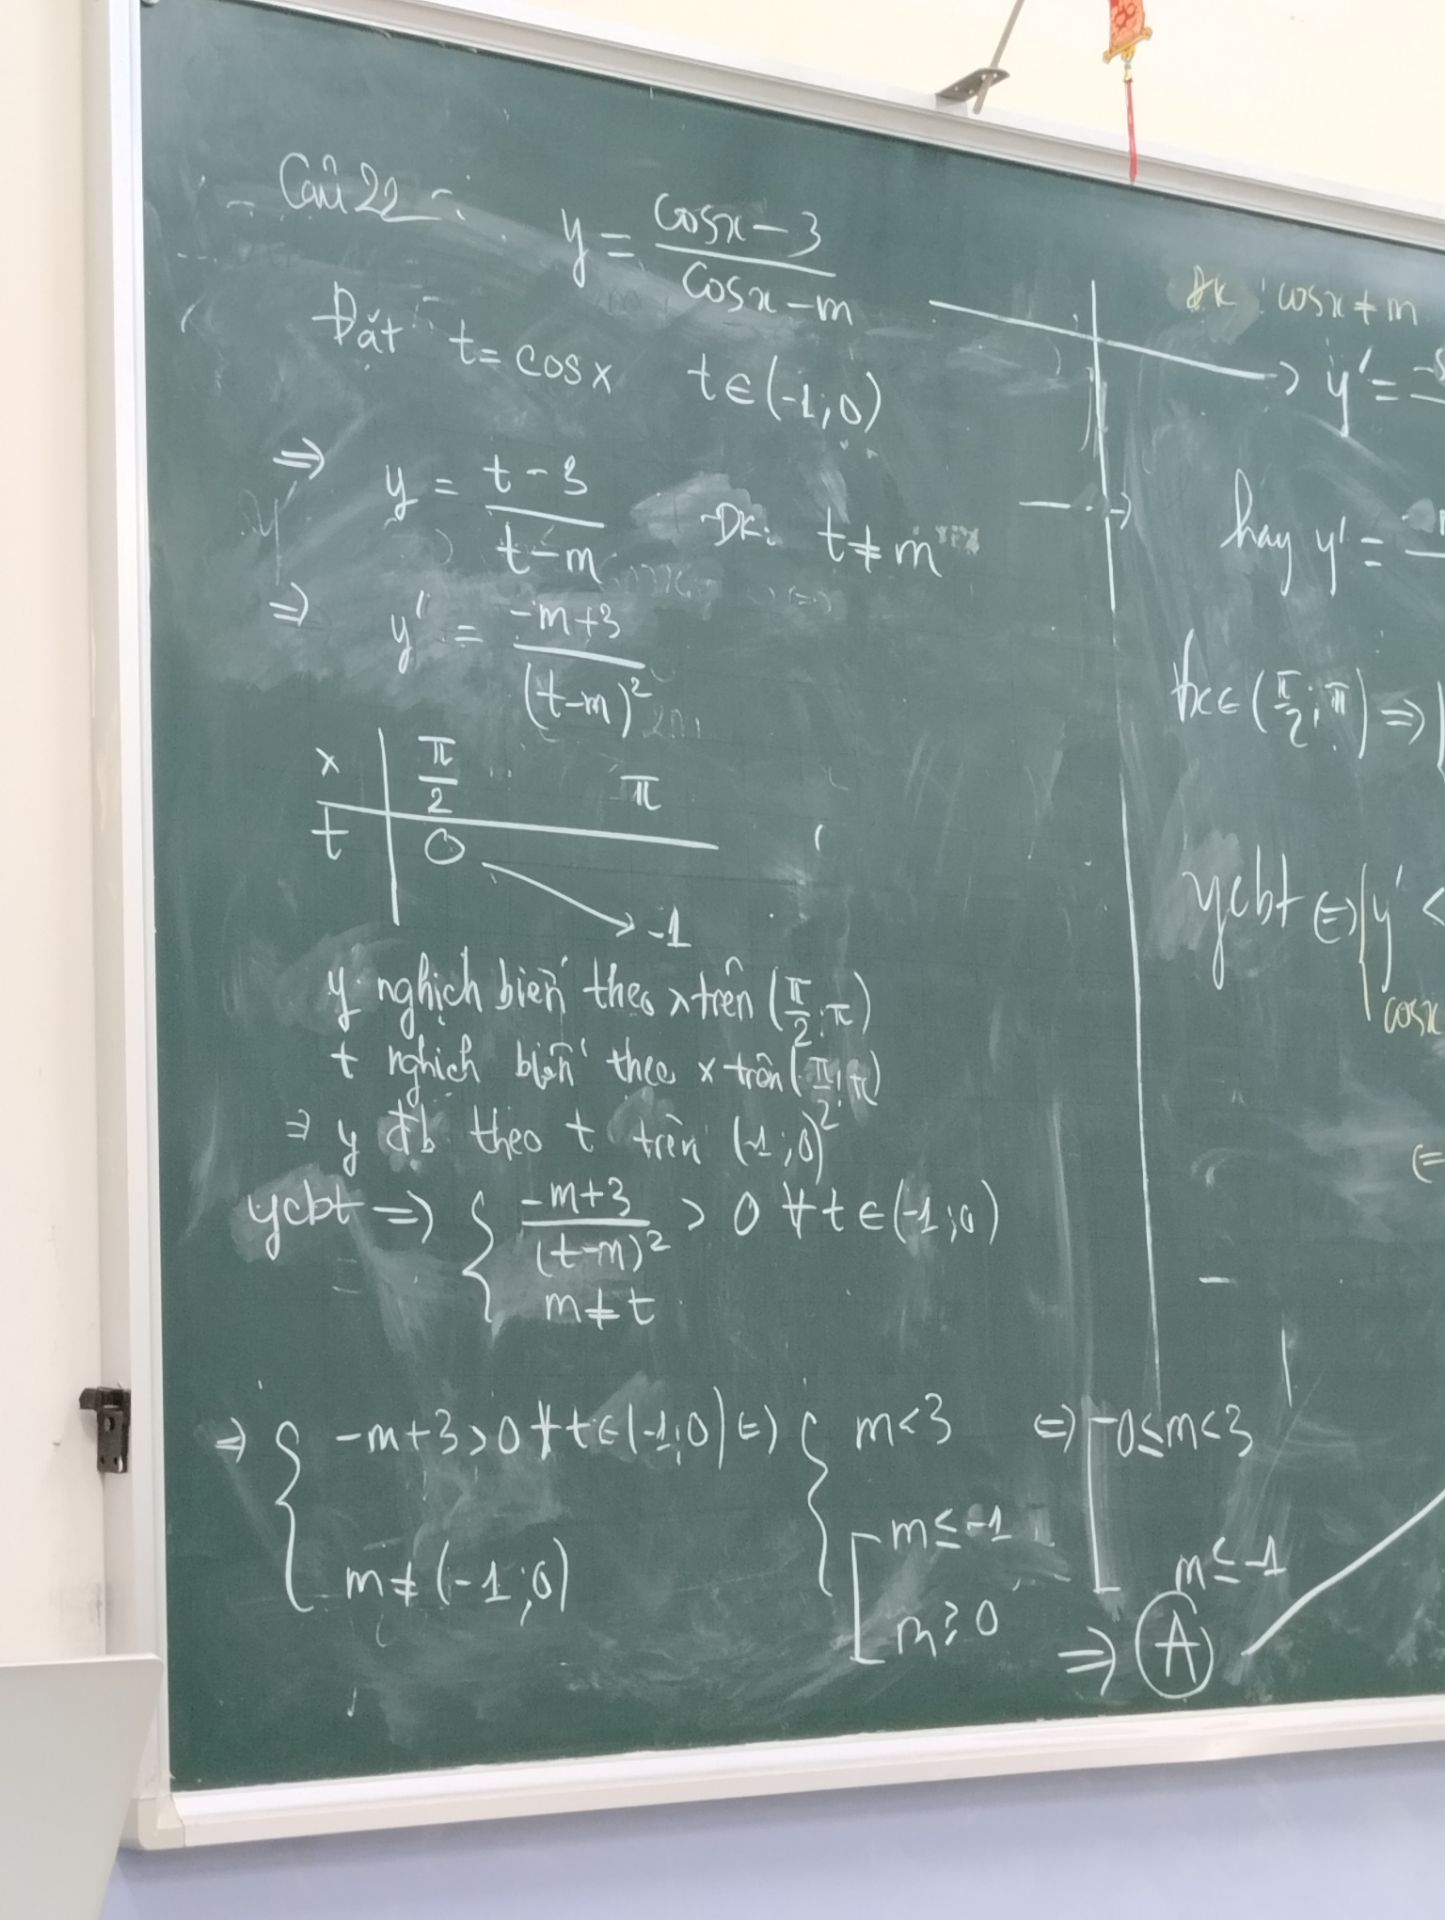 Câu 22:
y = \frac{cosx - 3}{cosx - m}
Đặt t = cosx t ∈ (-1;0)
⇒ y = \frac{t - 3}{t - m} ĐK: t ≠ m
⇒ y' = \frac{-m+3}{(t-m)^2}
x | \frac{π}{2} π
t | 0 → -1
y nghịch biến theo x trên (\frac{π}{2}; π)
t nghịch biến theo x trên (\frac{π}{2}; π)
⇒ y đb theo t trên (-1;0)
ycbt ⇒ { \frac{-m+3}{(t-m)^2} > 0 ∀t ∈ (-1;0)
m ≠ t
⇒ { -m+3 > 0 ∀t ∈ (-1;0) ⇔ { m < 3 ⇔ [ 0 ≤ m < 3
m ≠ (-1;0) [ m ≤ -1 m ≤ -1
m ≥ 0 ⇒ A
ĐK: cosx ≠ m
→ y' =
hay y' =
∀x ∈ (\frac{π}{2}; π) ⇒
ycbt ⇔ { y' <
cosx